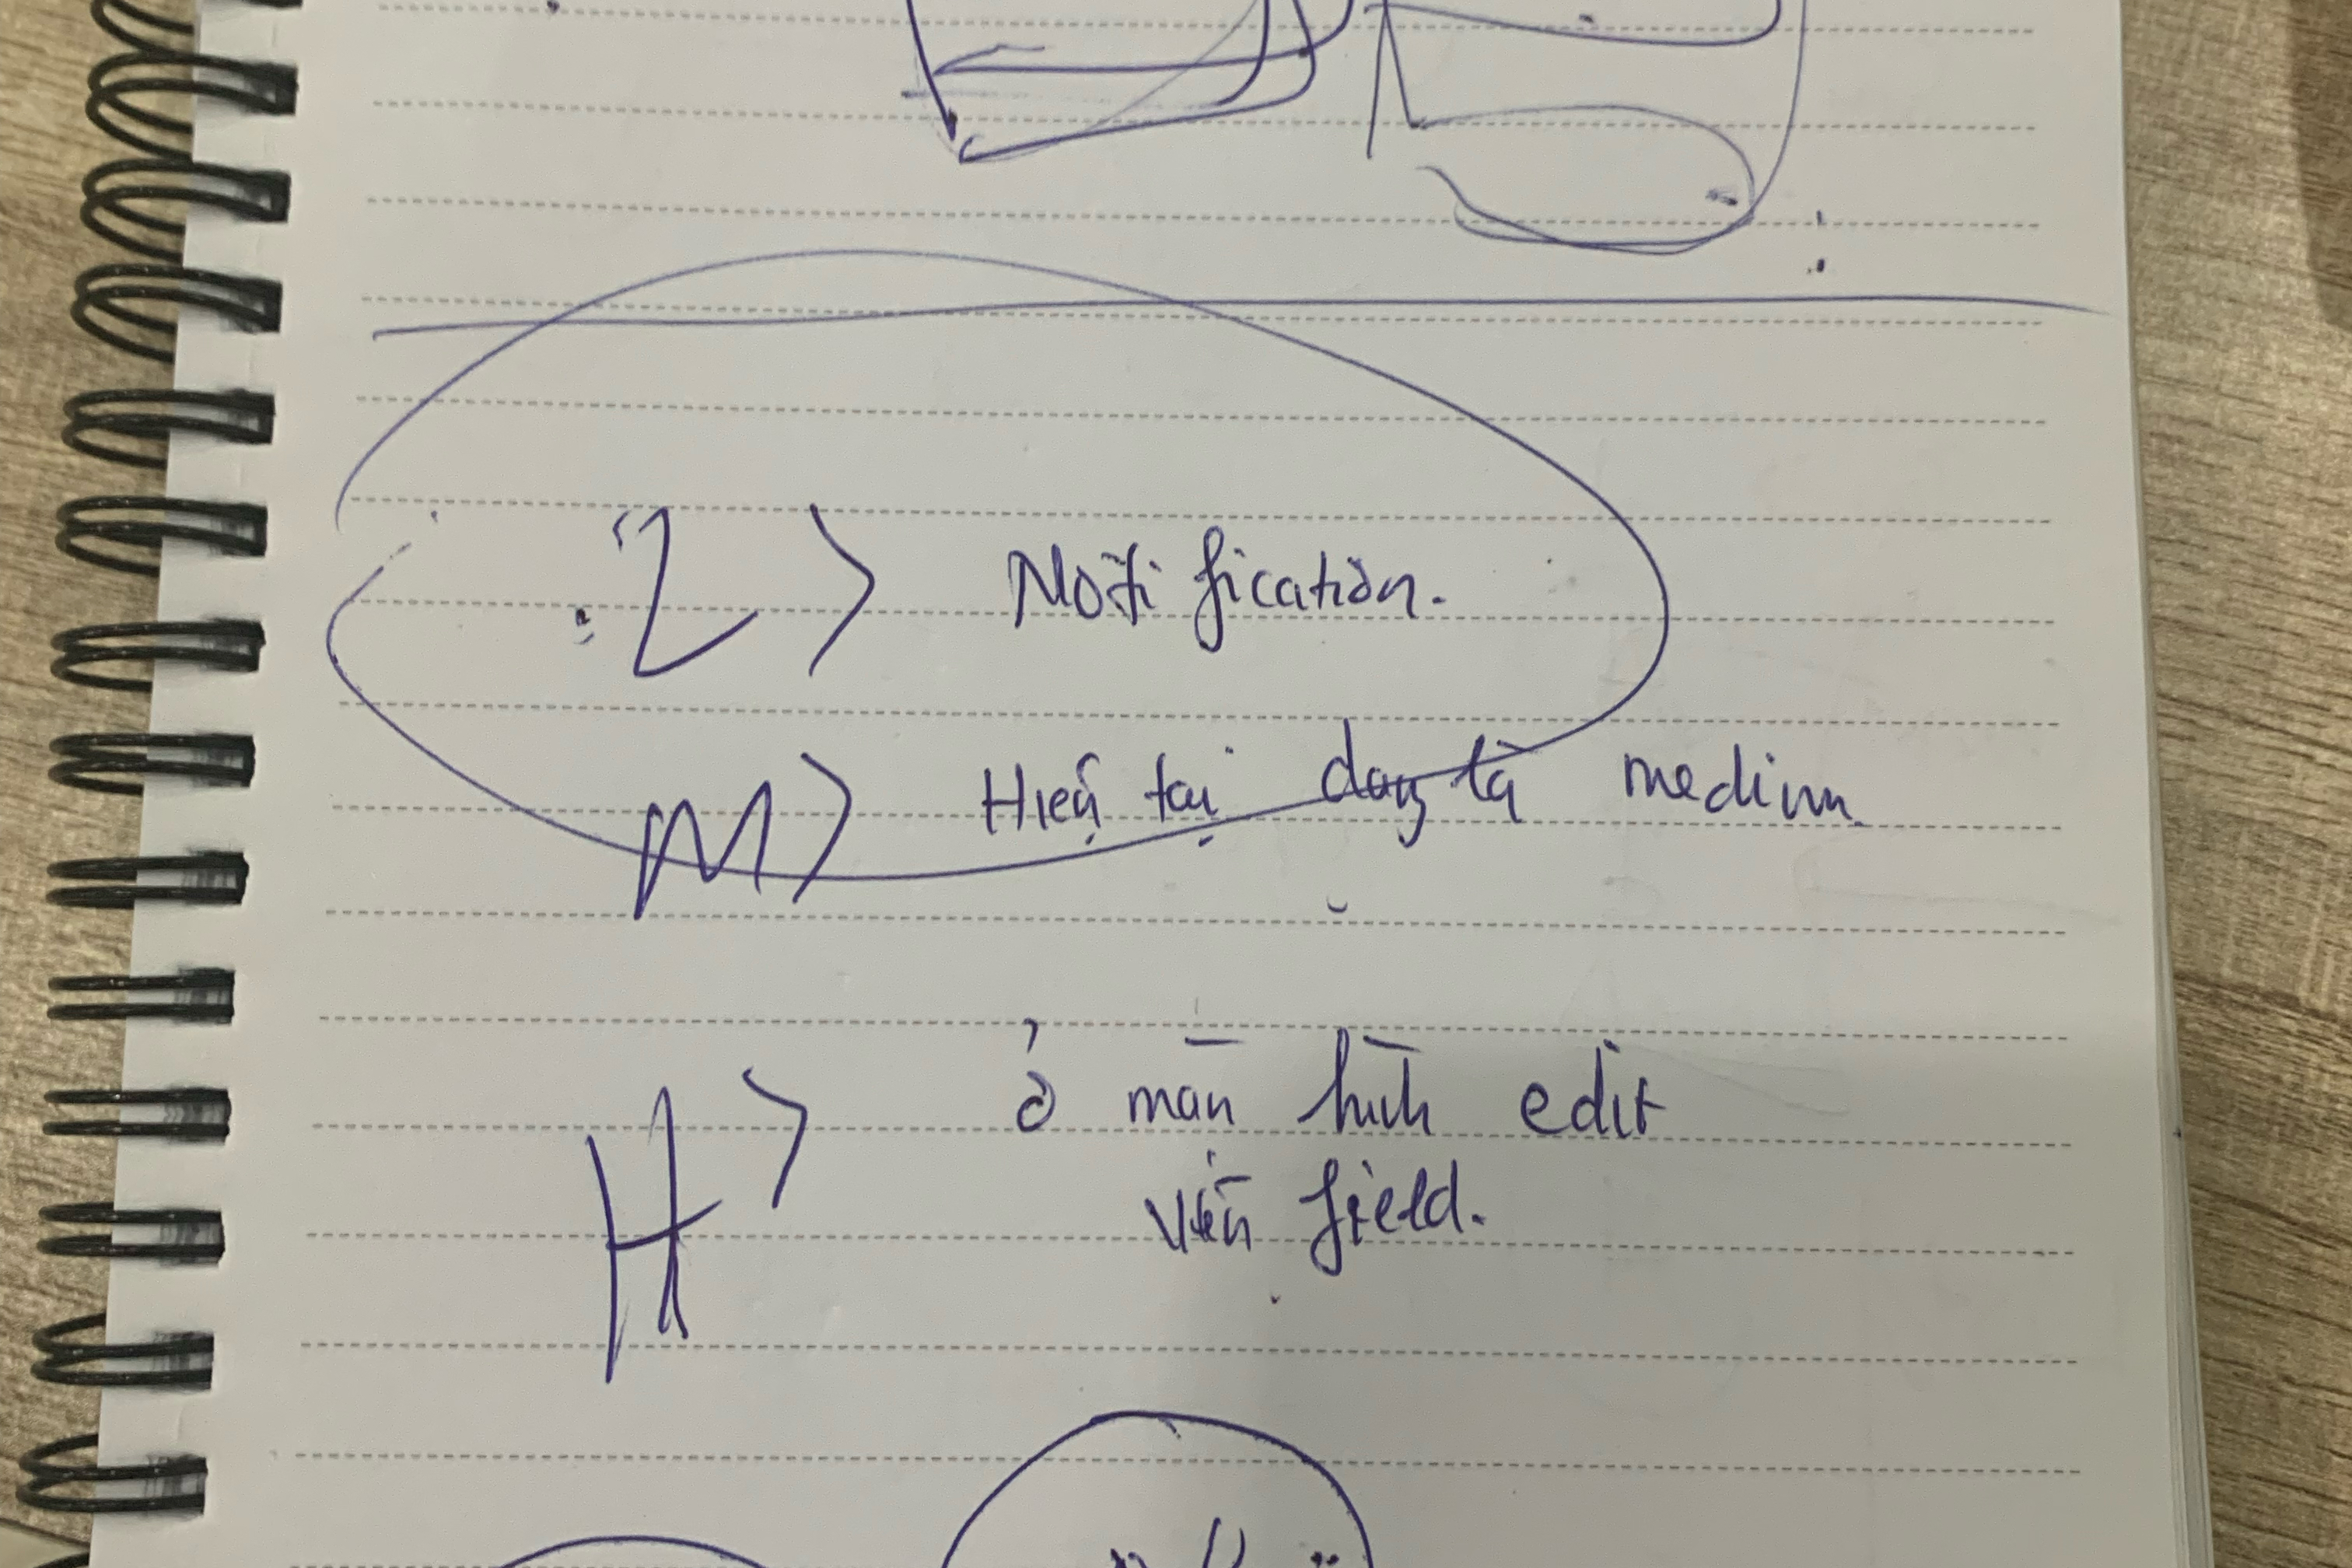 L> Notification.
M> Hiện tại đang là medium.
H> ở màn hình edit
viền field.